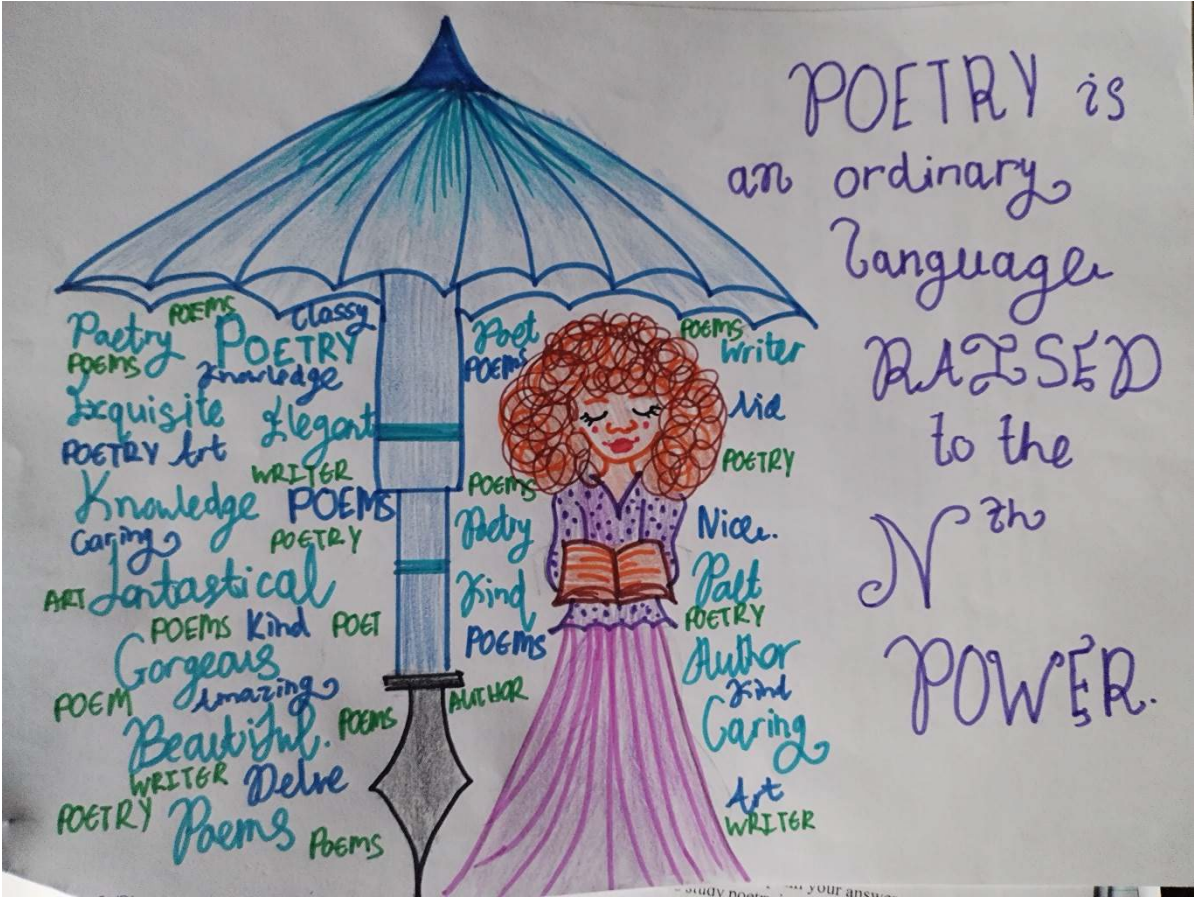 POETRY is
an ordinary
language
RAISED
to the
Nth
POWER.
POEMS
Classy
Paetry
POETRY
POEMS
Knowledge
Exquisite
Elegant
POETRY Art
WRITER
Knowledge
POEMS
Caring
POETRY
ART
Fantastical
POEMS Kind POET
Gorgeous
POEM
Amazing
POEMS
Beautiful.
WRITER Delve
POETRY
Poems
POEMS
Poet
POEMS
POEMS
Poetry
Kind
POEMS
AUTHOR
POEMS
Writer
POETRY
Nice.
POETRY
Author
Kind
Caring
Art
WRITER